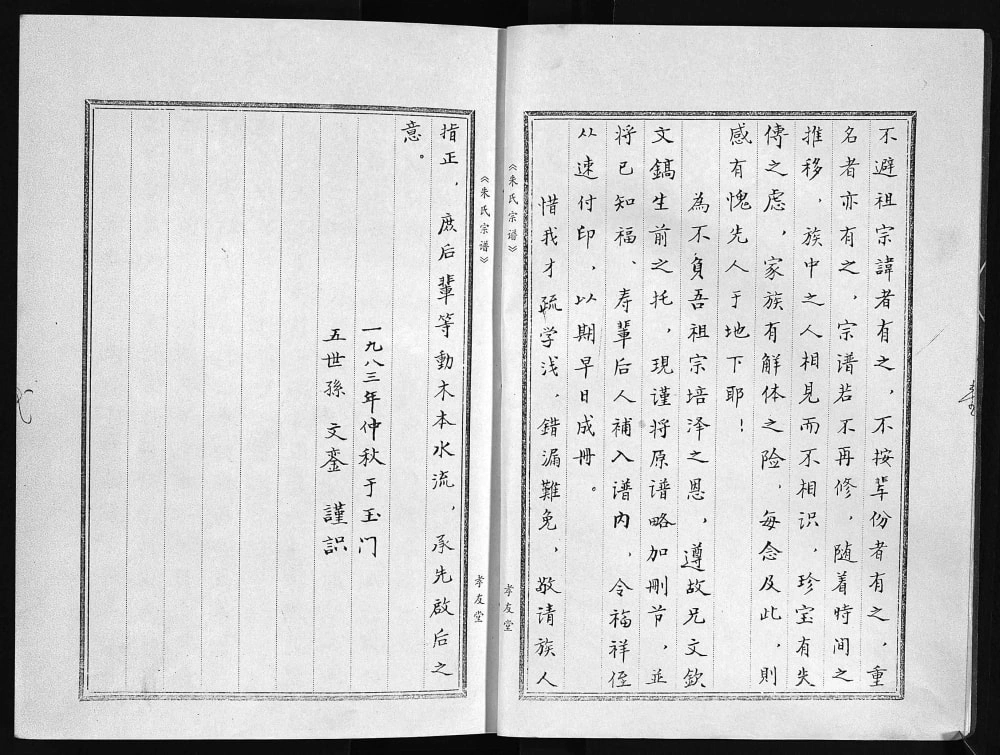 不避祖宗諱者有之，不按辈份者有之，重
名者亦有之，宗谱若不再修，随着時间之
推移，族中之人相見而不相识，珍宝有失
傳之虑，家族有解体之险，每念及此，則
感有愧先人于地下耶！
為不負吾祖宗培泽之恩，遵故兄文欽
文鎬生前之托，現谨将原谱略加刪节，並
将已知福、寿輩后人補入谱内，令福祥侄
从速付印，以期早日成册。
惜我才疏学浅，錯漏難免，敬请族人
《朱氏宗谱》
孝友堂
《朱氏宗谱》
孝友堂
指正，庶后輩等動木本水流，承先啟后之
意。
一九八三年仲秋于玉门
五世孫 文銮 謹識